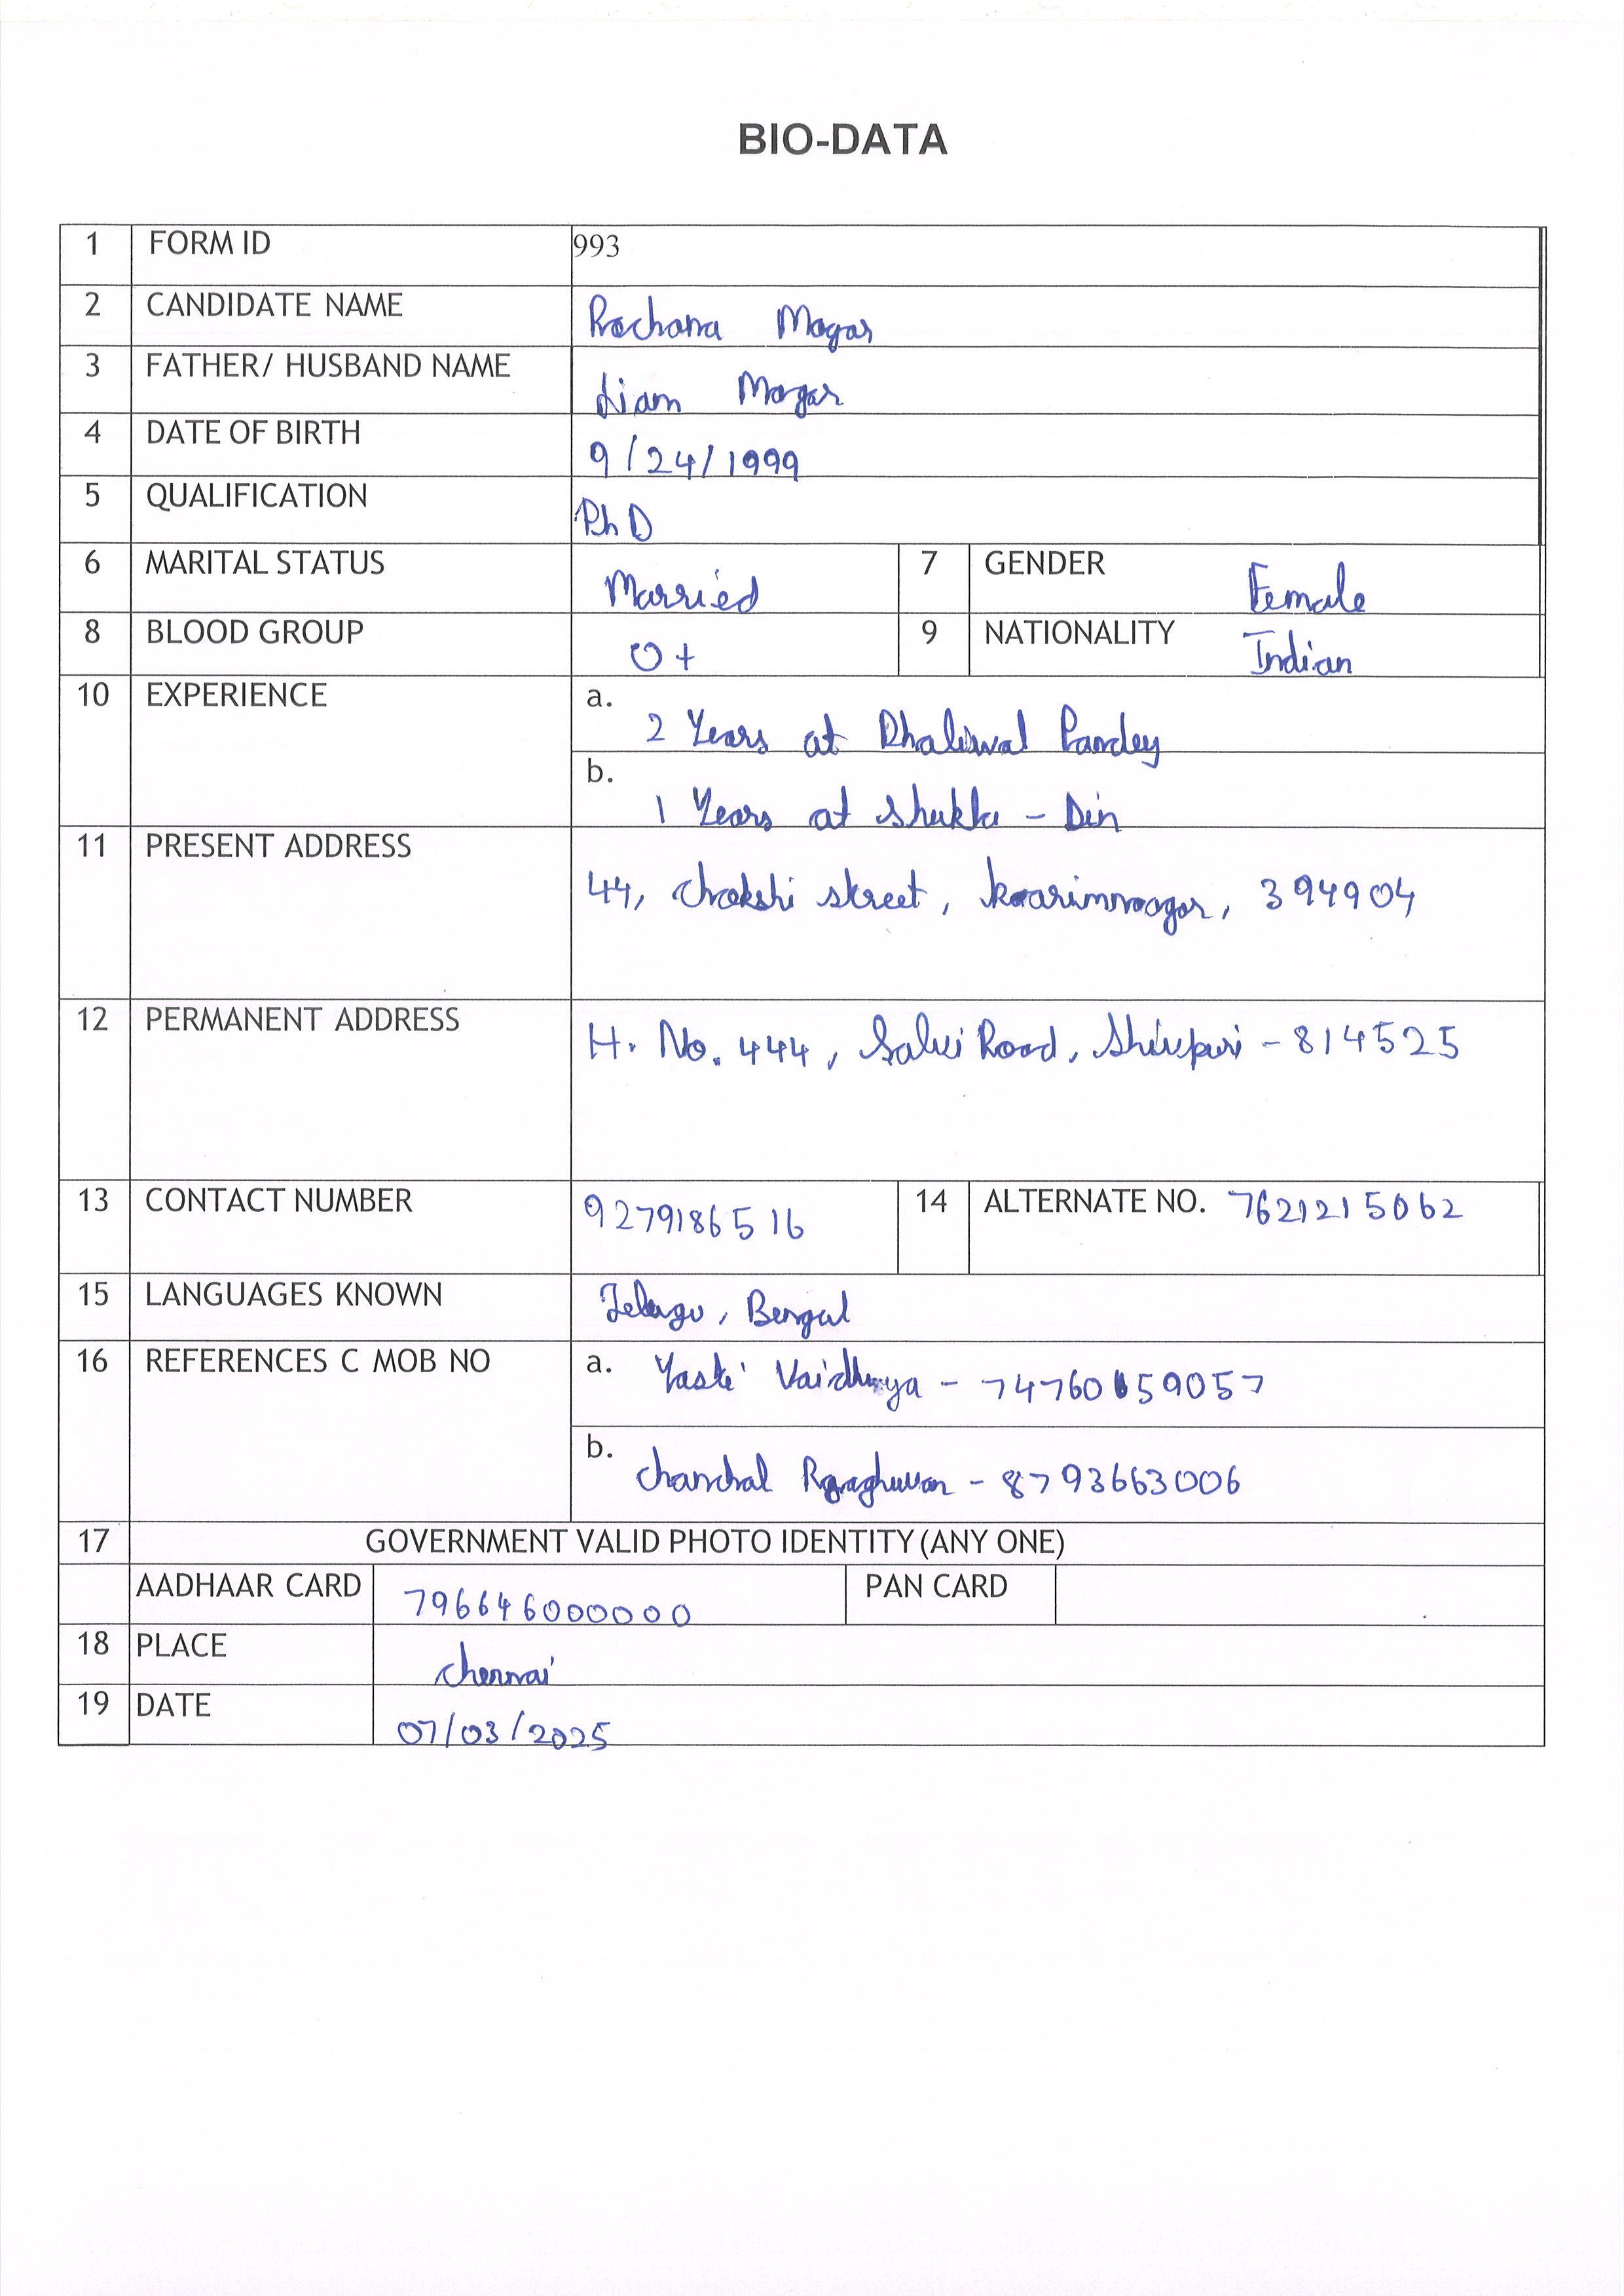 BIO-DATA
1 FORM ID 993
2 CANDIDATE NAME Rachana Magar
3 FATHER/ HUSBAND NAME Liam Magar
4 DATE OF BIRTH 9/24/1999
5 QUALIFICATION Ph D
6 MARITAL STATUS Married 7 GENDER Female
8 BLOOD GROUP O+ 9 NATIONALITY Indian
10 EXPERIENCE a. 2 Years at Dhaliwal Pandey
b. 1 Years at Shukla - Din
11 PRESENT ADDRESS 44, Chokshi street, Kaarimnagar, 394904
12 PERMANENT ADDRESS H. No. 444, Salvi Road, Shivpuri - 814525
13 CONTACT NUMBER 9279186516 14 ALTERNATE NO. 7621215062
15 LANGUAGES KNOWN Telugu, Bengal
16 REFERENCES C MOB NO a. Yasti Vaidhya - 74760659057
b. Chanchal Raaghuvan - 8793663006
17 GOVERNMENT VALID PHOTO IDENTITY (ANY ONE)
AADHAAR CARD 796646000000 PAN CARD
18 PLACE Chennai
19 DATE 07/03/2025